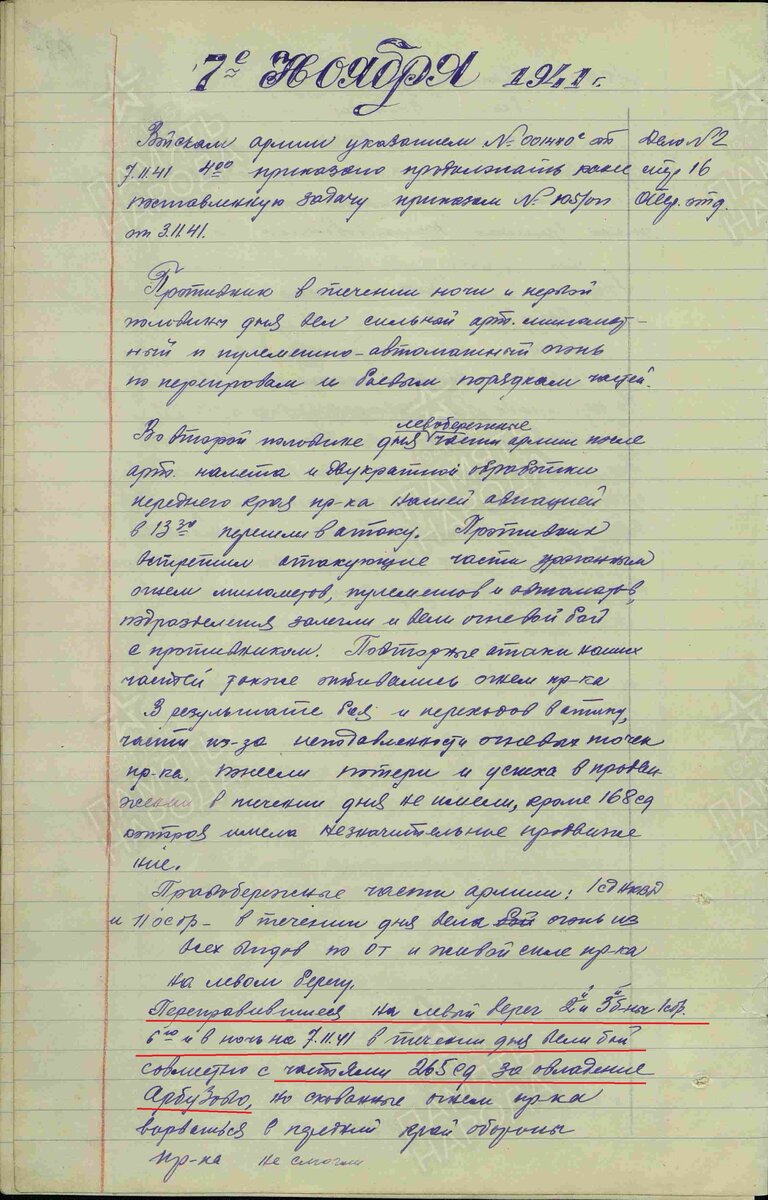 7е Ноября 1941 г.
Войскам армии указанием № 001440с от Дело № 2
7.11.41 400 приказано продолжать ранее стр 16
поставленную задачу приказом № 105/оп Опер. отд.
от 3.11.41.
Противник в течении ночи и первой
половины дня вел сильной арт. миномет-
ный и пулеметно-автоматный огонь
по переправам и боевым порядкам частей.
левобережные
Во второй половине дня части армии после
арт. налета и двукратной обработки
переднего края пр-ка нашей авиацией
в 13 30 перешли в атаку. Противник
встретил атакующие части ураганным
огнем минометов, пулеметов и автоматов,
подразделения залегли и вели огневой бой
с противником. Повторные атаки наших
частей также отбивались огнем пр-ка
В результате боя и переходов в атаку,
части из-за неподавленности огневых точек
пр-ка, понесли потери и успеха в продви
жении в течении дня не имели, кроме 168 сд
которая имела незначительное продвиже
ние.
Правобережные части армии: 1 сд НКВД
и 11 осбр - в течении дня вела бой огонь из
всех видов по от и живой силе пр-ка
на левом берегу.
Переправившиеся на левый берег 2й и 3й б-ны 1сбр.
6го и в ночь на 7.11.41 в течении дня вели бой
совместно с частями 265 сд за овладение
Арбузово, но скованные огнем пр-ка
ворваться в передний край обороны
пр-ка не смогли